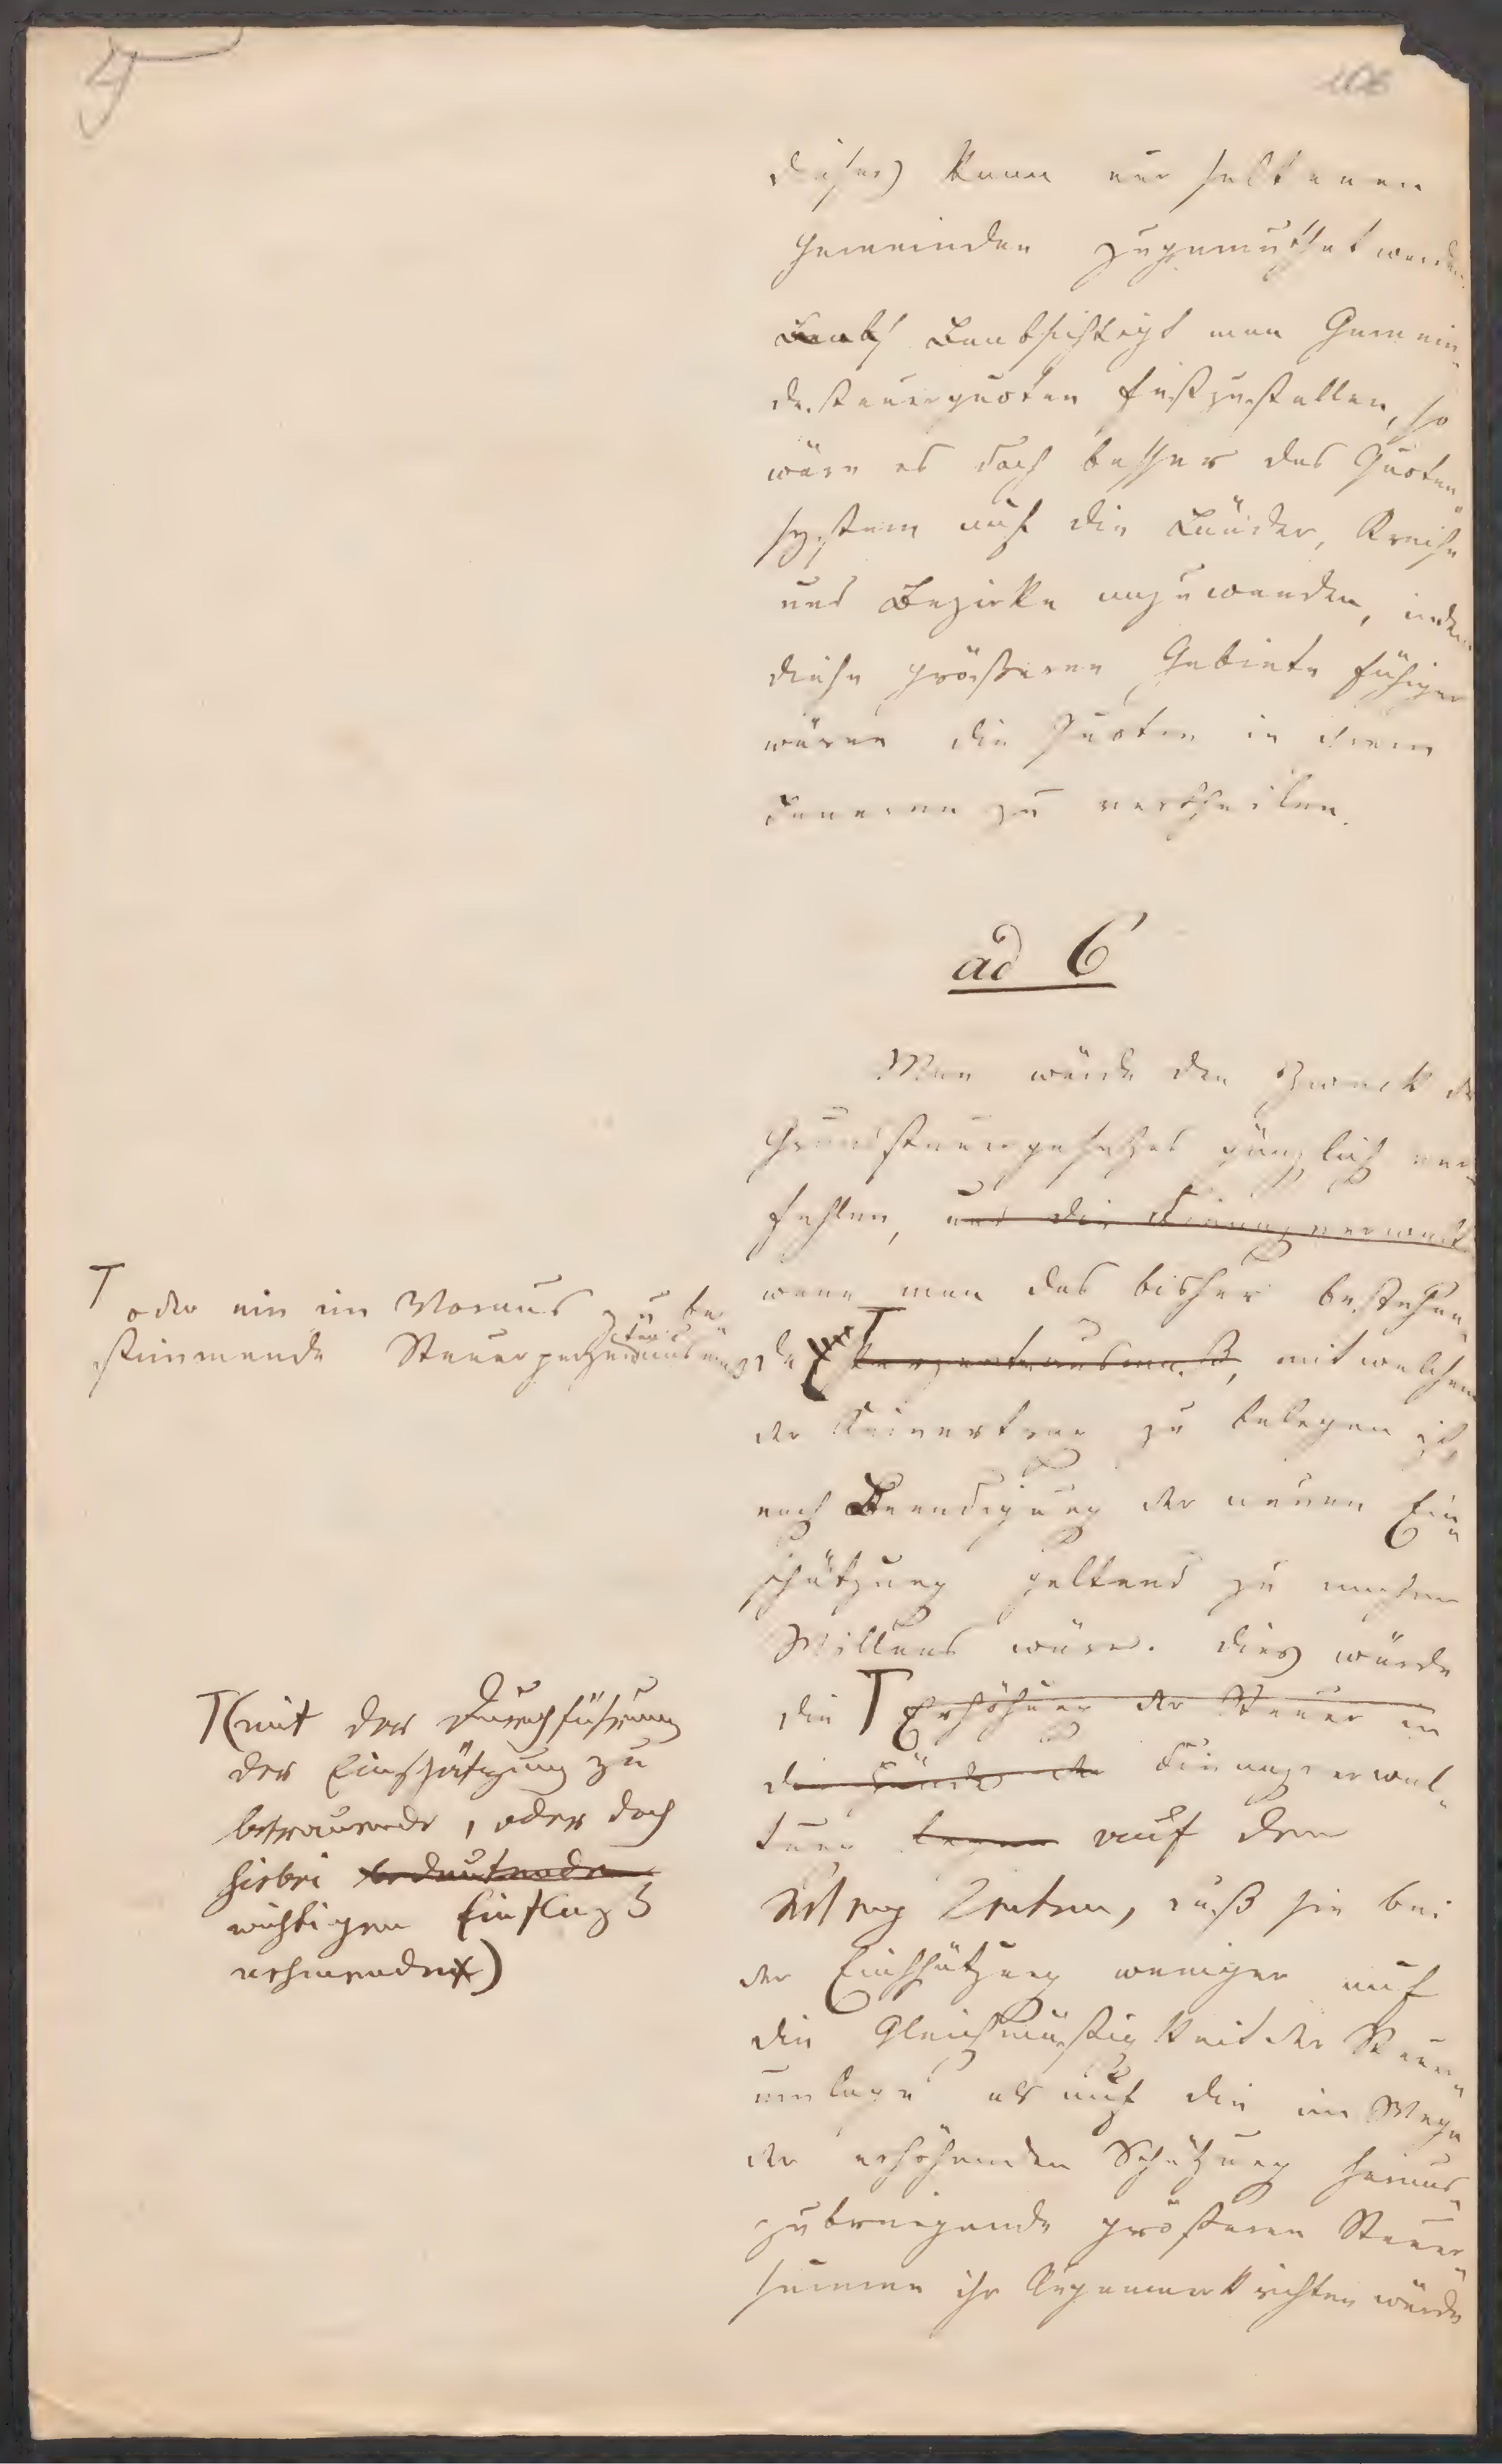 106
dieses) kann nur seltenen
Gemeinden zugemuthet werden.
Beabs Beabsichtigt man Gemein-
desteuerquoten festzustellen, so
wäre es doch besser das Quoten-
system auf die Länder, Kreise
und Bezirke anzuwenden, indem
diese größeren Gebiete fähiger
wären die Quoten in ihrem
Inneren zu vertheilen.
ad 6
Man würde den Zweck des
Grundsteuergesetzes gänzlich ver-
fehlen, und die Finanzverwalt
wenn man das bisher bestehen-
de T Perzentausmaß, mit welchem
der Reinertrag zu belegen ist,
nach Beendigung der neuen Ein-
schätzung geltend zu machen
Willens wäre. Dies würde
die T Erhöhung der Steuer in
die Hände der Finanzverwal-
tung legen auf den
Weg treten, daß sie bei
der Einschätzung weniger auf
die Gleichmäßigkeit der Steuer-
umlage als auf die im Wege
der erhöhenden Schätzung heraus-
zubringende größeren Steuer-
summe ihr Augenmerk richten würde
T oder ein im Voraus zu be-
stimmende Steuerperzent
T (mit der Durchführung
der Einschätzung zu
betrauende, oder doch
hiebei bedeutenden
wichtigen Einfluß
nehmenden)